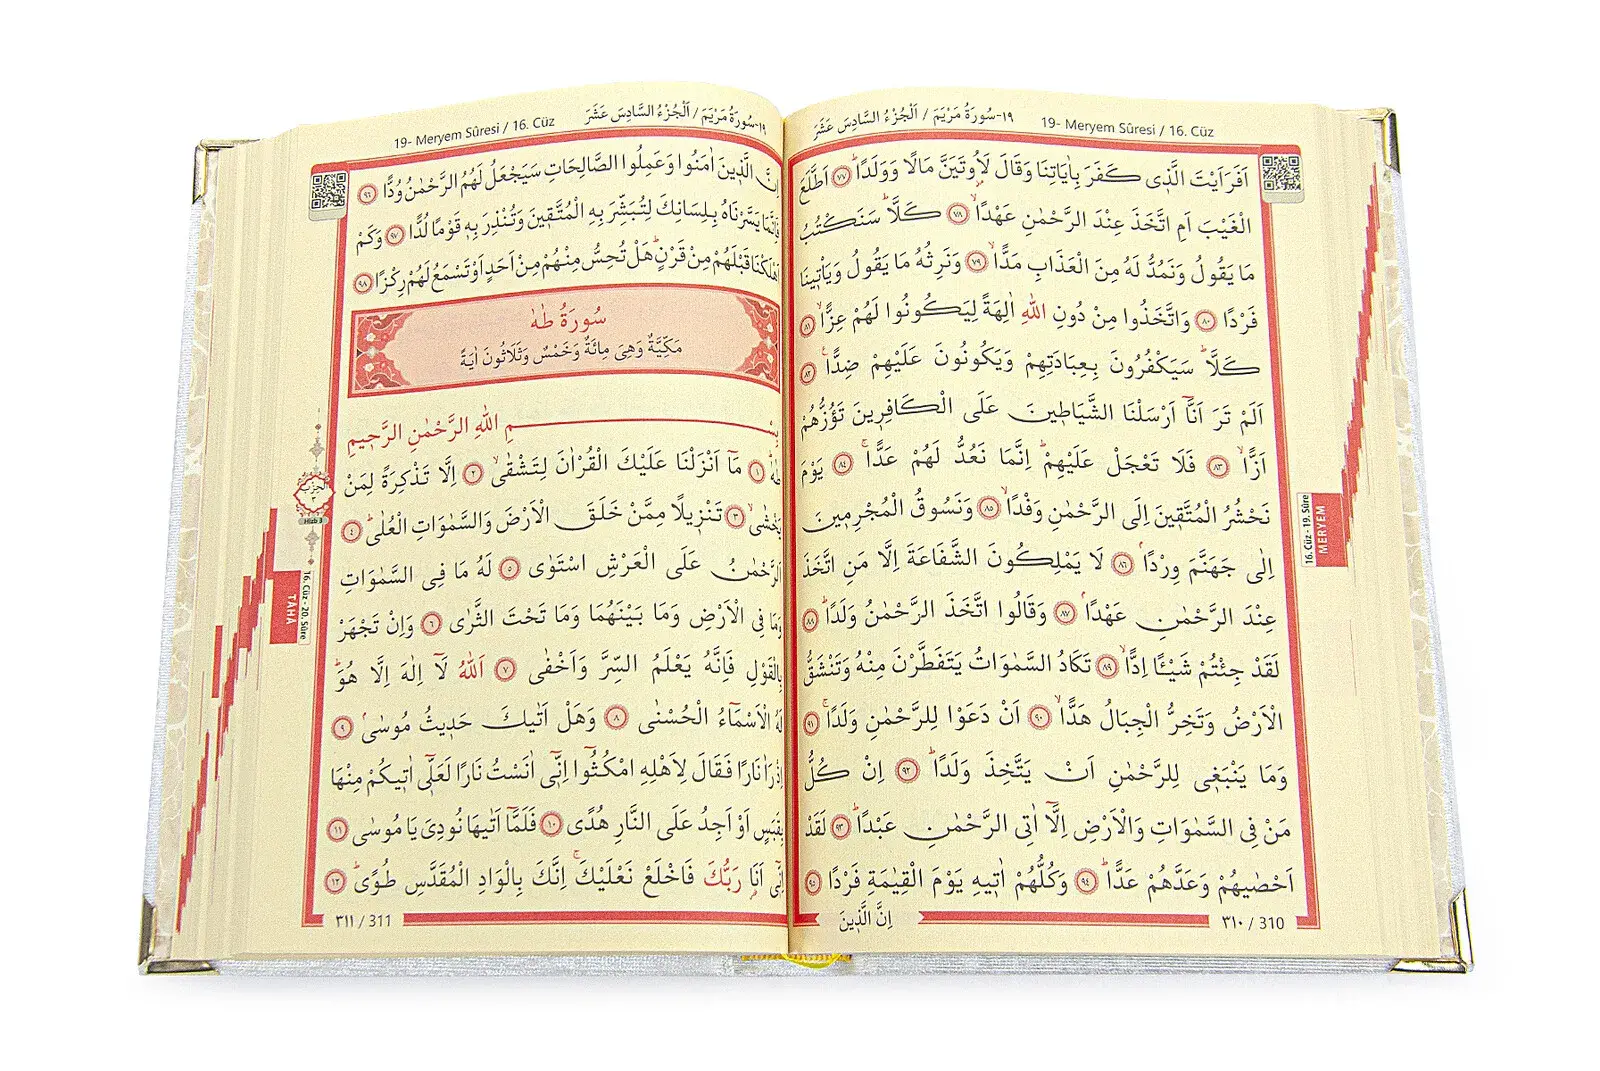 19- Meryem Sûresi / 16. Cüz ١٩-سُورَةُ مَرْيَمَ / اَلْجُزْءُ السَّادِسَ عَشَرَ
اَفَرَاَيْتَ الَّذ۪ى كَفَرَ بِاٰيَاتِنَا وَقَالَ لَاُو۫تَيَنَّ مَالًا وَوَلَدًاۜ ﴿٧٧﴾ اَطَّلَعَ
الْغَيْبَ اَمِ اتَّخَذَ عِنْدَ الرَّحْمٰنِ عَهْدًاۙ ﴿٧٨﴾ كَلَّاۜ سَنَكْتُبُ
مَا يَقُولُ وَنَمُدُّ لَهُ مِنَ الْعَذَابِ مَدًّاۙ ﴿٧٩﴾ وَنَرِثُهُ مَا يَقُولُ وَيَاْت۪ينَا
فَرْدًا ﴿٨٠﴾ وَاتَّخَذُوا مِنْ دُونِ اللّٰهِ اٰلِهَةً لِيَكُونُوا لَهُمْ عِزًّاۙ ﴿٨١﴾
كَلَّاۜ سَيَكْفُرُونَ بِعِبَادَتِهِمْ وَيَكُونُونَ عَلَيْهِمْ ضِدًّا۟ ﴿٨٢﴾
اَلَمْ تَرَ اَنَّٓا اَرْسَلْنَا الشَّيَاط۪ينَ عَلَى الْكَافِر۪ينَ تَؤُزُّهُمْ
اَزًّاۙ ﴿٨٣﴾ فَلَا تَعْجَلْ عَلَيْهِمْۜ اِنَّمَا نَعُدُّ لَهُمْ عَدًّاۚ ﴿٨٤﴾ يَوْمَ
نَحْشُرُ الْمُتَّق۪ينَ اِلَى الرَّحْمٰنِ وَفْدًاۙ ﴿٨٥﴾ وَنَسُوقُ الْمُجْرِم۪ينَ
اِلٰى جَهَنَّمَ وِرْدًاۢ ﴿٨٦﴾ لَا يَمْلِكُونَ الشَّفَاعَةَ اِلَّا مَنِ اتَّخَذَ
عِنْدَ الرَّحْمٰنِ عَهْدًاۢ ﴿٨٧﴾ وَقَالُوا اتَّخَذَ الرَّحْمٰنُ وَلَدًاۜ ﴿٨٨﴾
لَقَدْ جِئْتُمْ شَيْـًٔا اِدًّاۙ ﴿٨٩﴾ تَكَادُ السَّمٰوَاتُ يَتَفَطَّرْنَ مِنْهُ وَتَنْشَقُّ
الْاَرْضُ وَتَخِرُّ الْجِبَالُ هَدًّاۙ ﴿٩٠﴾ اَنْ دَعَوْا لِلرَّحْمٰنِ وَلَدًاۚ ﴿٩١﴾
وَمَا يَنْبَغ۪ى لِلرَّحْمٰنِ اَنْ يَتَّخِذَ وَلَدًاۜ ﴿٩٢﴾ اِنْ كُلُّ
مَنْ فِى السَّمٰوَاتِ وَالْاَرْضِ اِلَّٓا اٰتِى الرَّحْمٰنِ عَبْدًاۜ ﴿٩٣﴾ لَقَدْ
اَحْصٰيهُمْ وَعَدَّهُمْ عَدًّاۜ ﴿٩٤﴾ وَكُلُّهُمْ اٰت۪يهِ يَوْمَ الْقِيٰمَةِ فَرْدًا ﴿٩٥﴾
٣١٠ / 310
اِنَّ الَّذ۪ينَ
16. Cüz - 19. Sûre
MERYEM
19- Meryem Sûresi / 16. Cüz ١٩-سُورَةُ مَرْيَمَ / اَلْجُزْءُ السَّادِسَ عَشَرَ
اِنَّ الَّذ۪ينَ اٰمَنُوا وَعَمِلُوا الصَّالِحَاتِ سَيَجْعَلُ لَهُمُ الرَّحْمٰنُ وُدًّا ﴿٩٦﴾
فَاِنَّمَا يَسَّرْنَاهُ بِلِسَانِكَ لِتُبَشِّرَ بِهِ الْمُتَّق۪ينَ وَتُنْذِرَ بِه۪ قَوْمًا لُدًّا ﴿٩٧﴾ وَكَمْ
اَهْلَكْنَا قَبْلَهُمْ مِنْ قَرْنٍۜ هَلْ تُحِسُّ مِنْهُمْ مِنْ اَحَدٍ اَوْ تَسْمَعُ لَهُمْ رِكْزًا ﴿٩٨﴾
سُورَةُ طٰهٰ
مَكِّيَّةٌ وَهِىَ مِائَةٌ وَخَمْسٌ وَثَلَاثُونَ اٰيَةً
بِسْمِ اللّٰهِ الرَّحْمٰنِ الرَّح۪يمِ
طٰهٰۜ ﴿١﴾ مَٓا اَنْزَلْنَا عَلَيْكَ الْقُرْاٰنَ لِتَشْقٰىۙ ﴿٢﴾ اِلَّا تَذْكِرَةً لِمَنْ
يَخْشٰىۙ ﴿٣﴾ تَنْز۪يلًا مِمَّنْ خَلَقَ الْاَرْضَ وَالسَّمٰوَاتِ الْعُلٰىۜ ﴿٤﴾
اَلرَّحْمٰنُ عَلَى الْعَرْشِ اسْتَوٰى ﴿٥﴾ لَهُ مَا فِى السَّمٰوَاتِ
وَمَا فِى الْاَرْضِ وَمَا بَيْنَهُمَا وَمَا تَحْتَ الثَّرٰى ﴿٦﴾ وَاِنْ تَجْهَرْ
بِالْقَوْلِ فَاِنَّهُ يَعْلَمُ السِّرَّ وَاَخْفٰى ﴿٧﴾ اَللّٰهُ لَٓا اِلٰهَ اِلَّا هُوَۜ
لَهُ الْاَسْمَٓاءُ الْحُسْنٰى ﴿٨﴾ وَهَلْ اَتٰيكَ حَد۪يثُ مُوسٰىۢ ﴿٩﴾
اِذْ رَاٰ نَارًا فَقَالَ لِاَهْلِهِ امْكُـثُٓوا اِنّ۪ٓى اٰنَسْتُ نَارًا لَعَلّ۪ٓى اٰت۪يكُمْ مِنْهَا
بِقَبَسٍ اَوْ اَجِدُ عَلَى النَّارِ هُدًى ﴿١٠﴾ فَلَمَّٓا اَتٰيهَا نُودِىَ يَا مُوسٰى ﴿١١﴾
اِنّ۪ٓى اَنَا۬ رَبُّكَ فَاخْلَعْ نَعْلَيْكَۚ اِنَّكَ بِالْوَادِ الْمُقَدَّسِ طُوًىۜ ﴿١٢﴾
٣١١ / 311
اَلْحِزْبُ
٣
Hizb 3
16. Cüz - 20. Sûre
TAHA